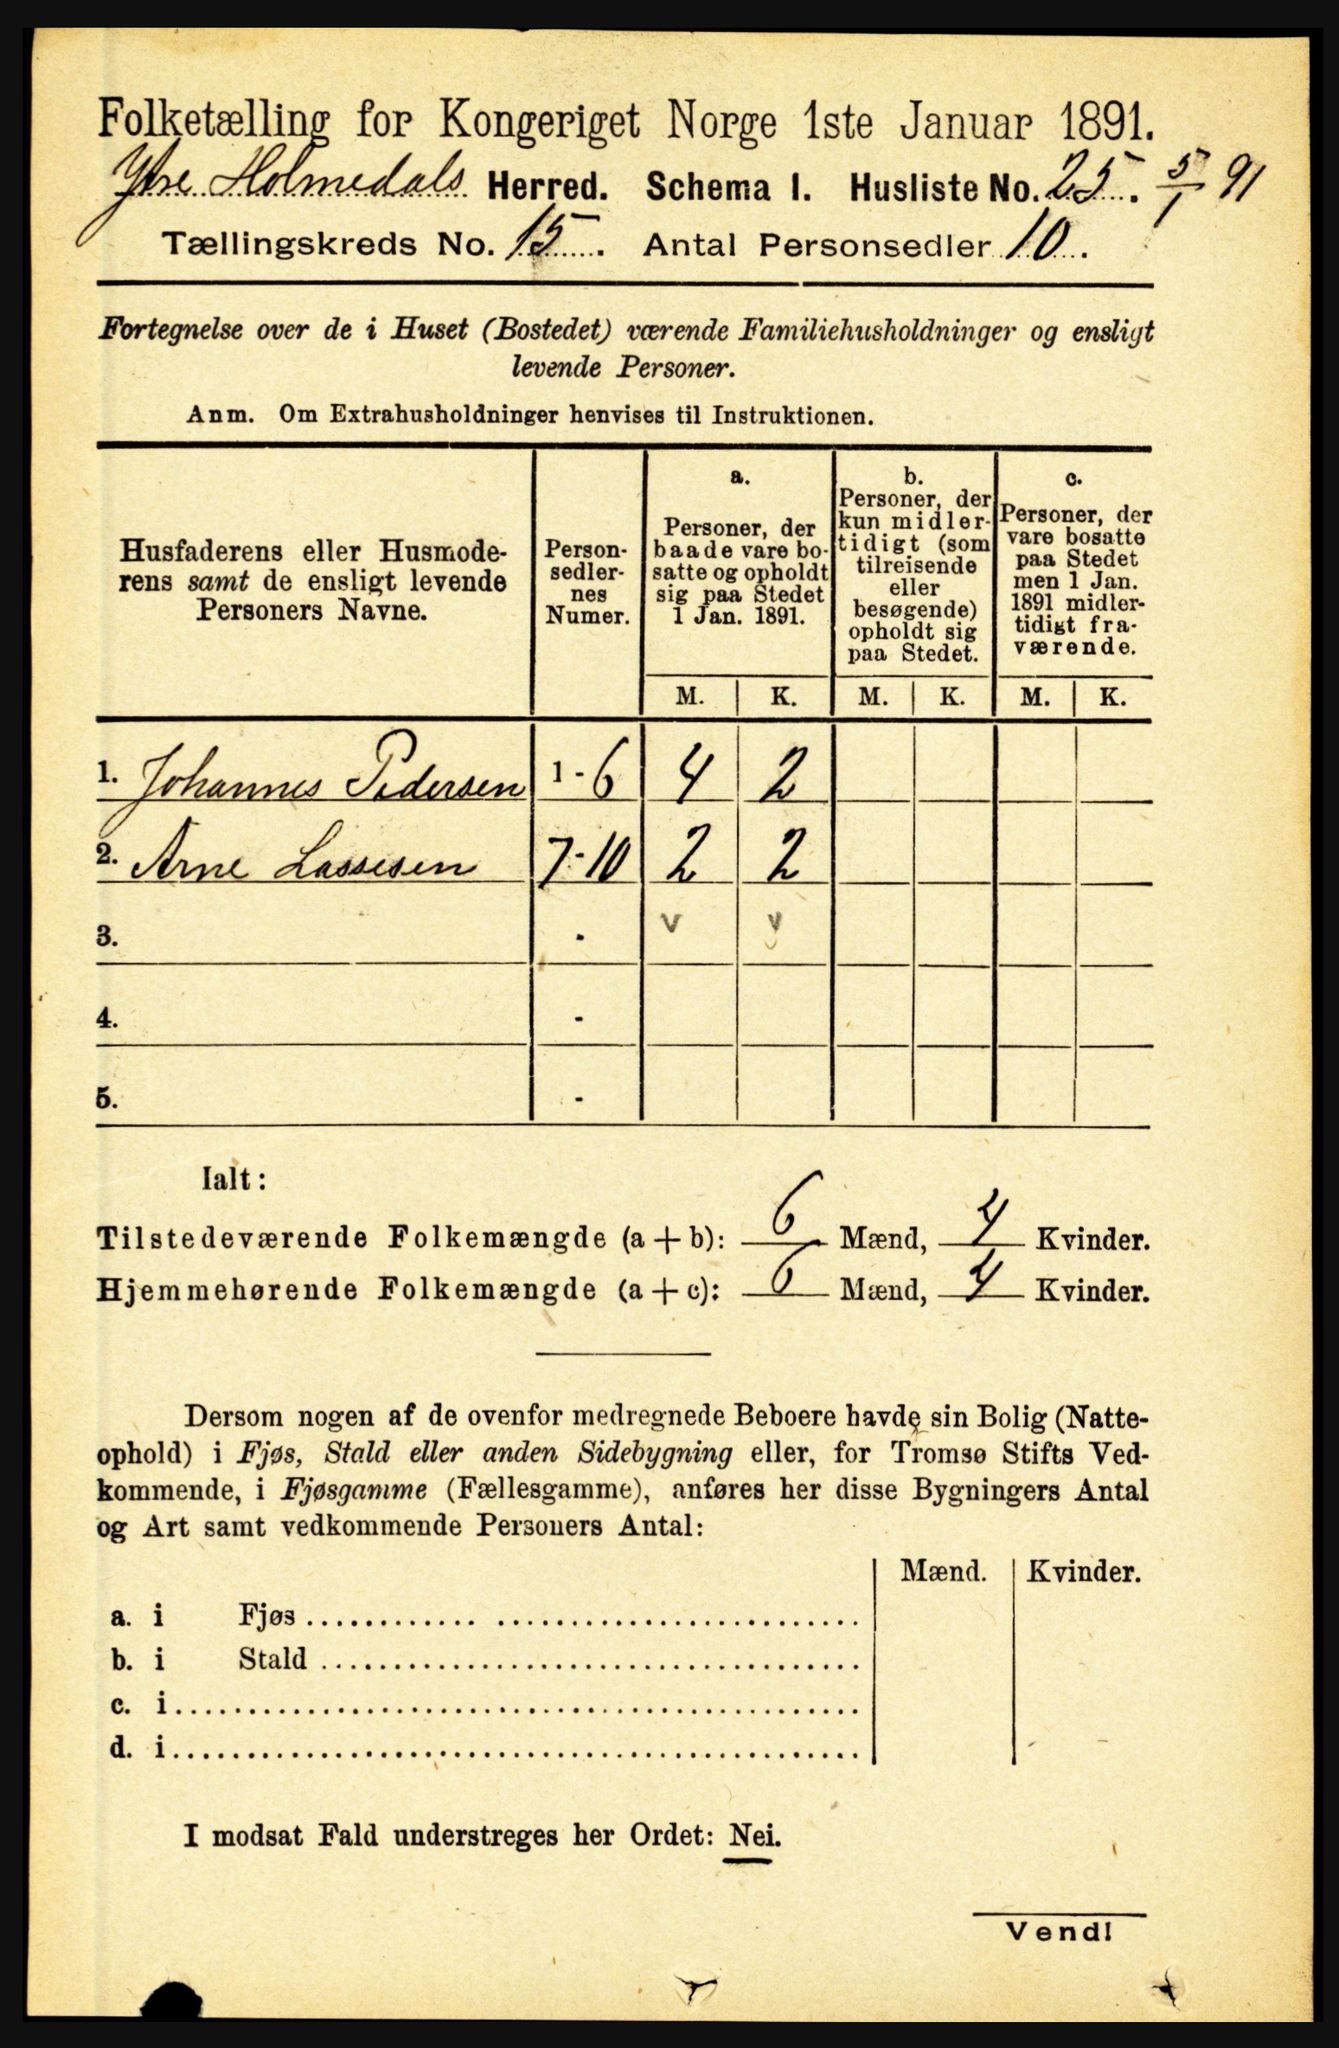 Folketælling for Kongeriget Norge 1ste Januar 1891.
Ytre Holmedals Herred. Schema I. Husliste No. 25. 5/1 91
Tællingskreds No. 15. Antal Personsedler 10.
Fortegnelse over de i Huset (Bostedet) værende Familiehusholdninger og ensligt
levende Personer.
Anm. Om Extrahusholdninger henvises til Instruktionen.
Husfaderens eller Husmode-
rens samt de ensligt levende
Personers Navne.
Person-
sedler-
nes
Numer.
a.
Personer, der
baade vare bo-
satte og opholdt
sig paa Stedet
1 Jan. 1891.
b.
Personer, der
kun midler-
tidigt (som
tilreisende
eller
besøgende)
opholdt sig
paa Stedet.
c.
Personer, der
vare bosatte
paa Stedet
men 1 Jan.
1891 midler-
tidigt fra-
værende.
M. K. M. K. M. K.
1. Johannes Pedersen 1-6 4 2
2. Arne Lassesen 7-10 2 2
3. - v v
4. -
5. -
Ialt:
Tilstedeværende Folkemængde (a + b): 6 Mænd, 4 Kvinder.
Hjemmehørende Folkemængde (a + c): 6 Mænd, 4 Kvinder.
Dersom nogen af de ovenfor medregnede Beboere havde sin Bolig (Natte-
ophold) i Fjøs, Stald eller anden Sidebygning eller, for Tromsø Stifts Ved-
kommende, i Fjøsgamme (Fællesgamme), anføres her disse Bygningers Antal
og Art samt vedkommende Personers Antal:
Mænd. Kvinder.
a. i Fjøs
b. i Stald
c. i
d. i
I modsat Fald understreges her Ordet: Nei.
Vend!